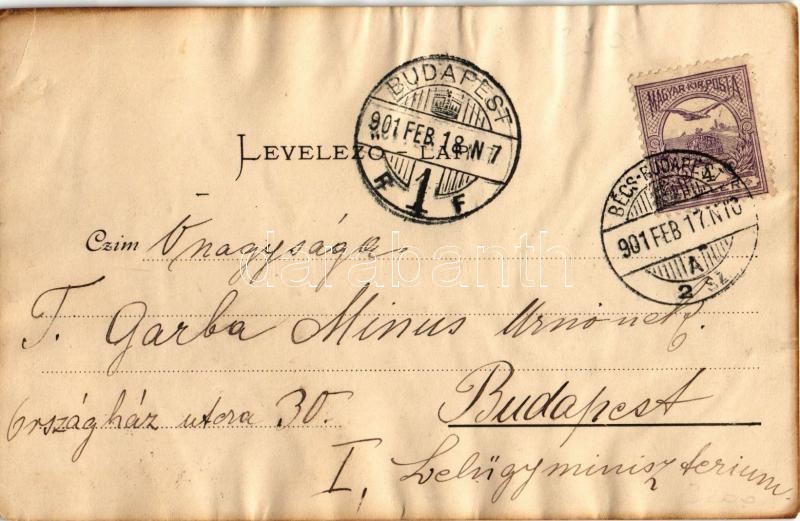 BUDAPEST
901 FEB. 18. N 7
1
F F
MAGYAR KIR. POSTA
4
BÉCS-BUDAPEST
901 FEB 17. N10
A
2 SZ
LEVELEZŐ – LAP.
darabanth
Czim Őnagysága
T. Garba Minus Urnőnek.
Országház utcza 30. Budapest
I, Belügyminiszterium.